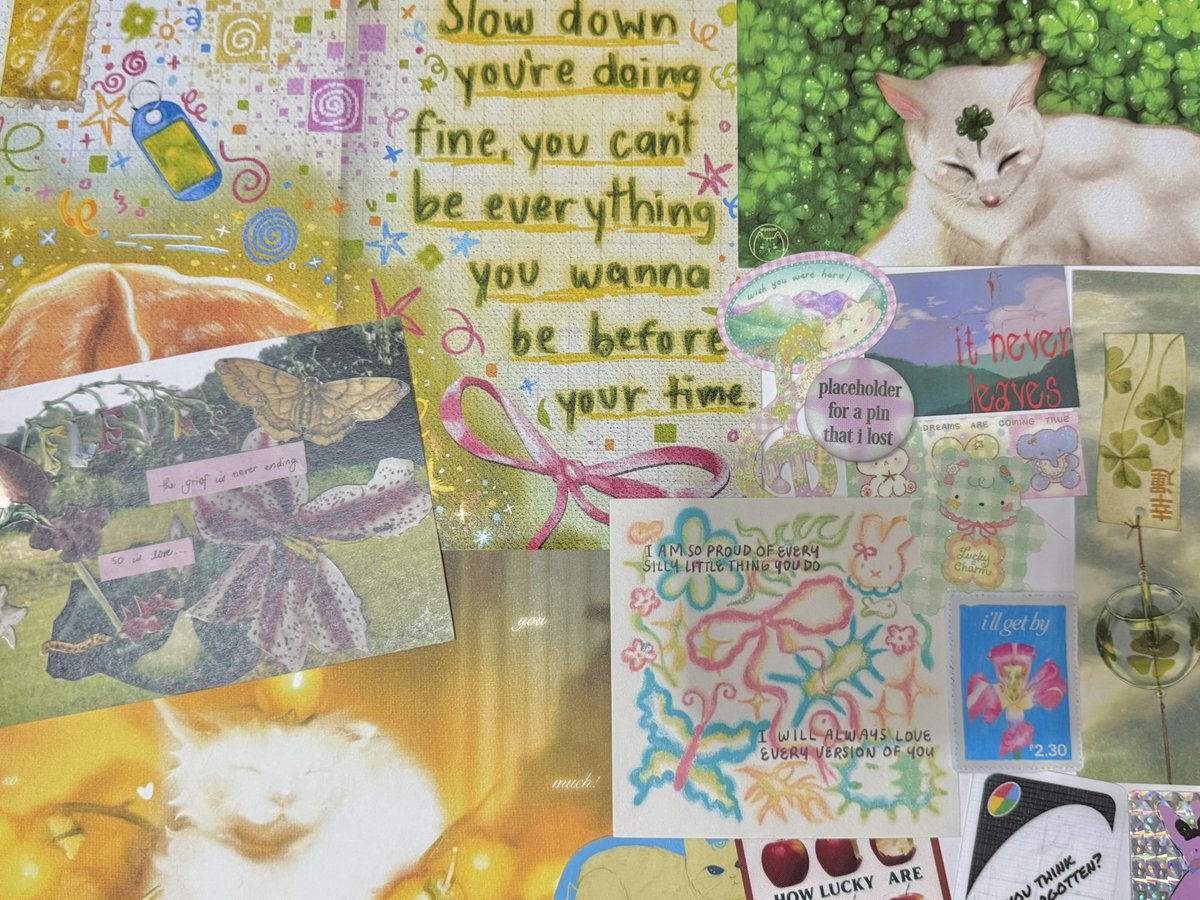 Slow down
you're doing
fine, you can't
be everything
you wanna
be before
your time.
wish you were here!
it never
leaves
placeholder
for a pin
that i lost
DREAMS ARE COMING TRUE
幸運
Lucky
Charm
FLEURS
the grief is never ending
so is love...
I AM SO PROUD OF EVERY
SILLY LITTLE THING YOU DO
I WILL ALWAYS LOVE
EVERY VERSION OF YOU
i'll get by
₱2.30
you
so
much!
HOW LUCKY ARE
YOU THINK